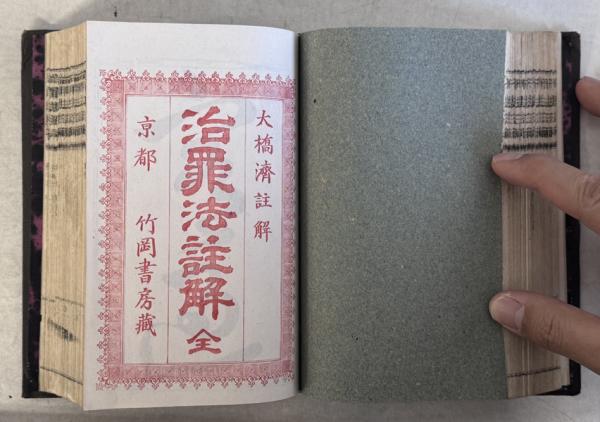 大橋濟註解
治罪法註解 全
京都 竹岡書房藏